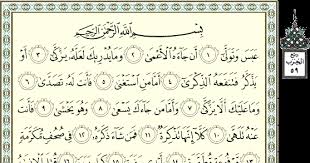 بِسْمِ اللَّهِ الرَّحْمَٰنِ الرَّحِيمِ
عَبَسَ وَتَوَلَّىٰٓ ١ أَن جَآءَهُ ٱلْأَعْمَىٰ ٢ وَمَا يُدْرِيكَ لَعَلَّهُۥ يَزَّكَّىٰٓ ٣ أَوْ
يَذَّكَّرُ فَتَنفَعَهُ ٱلذِّكْرَىٰٓ ٤ أَمَّا مَنِ ٱسْتَغْنَىٰ ٥ فَأَنتَ لَهُۥ تَصَدَّىٰ ٦
وَمَا عَلَيْكَ أَلَّا يَزَّكَّىٰ ٧ وَأَمَّا مَن جَآءَكَ يَسْعَىٰ ٨ وَهُوَ يَخْشَىٰ ٩ فَأَنتَ
عَنْهُ تَلَهَّىٰ ١٠ كَلَّآ إِنَّهَا تَذْكِرَةٌ ١١ فَمَن شَآءَ ذَكَرَهُۥ ١٢ فِى صُحُفٍ مُّكَرَّمَةٍ
ربع
الحزب
٥٩